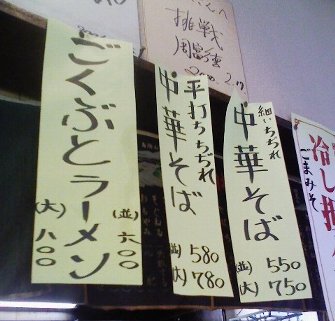 挑戦
ごくぶとラーメン
(並)六〇〇
(大)八〇〇
平打ちちぢれ
中華そば
(並)580
(大)780
細いちぢれ
中華そば
(並)550
(大)750
冷し
ごまみそ